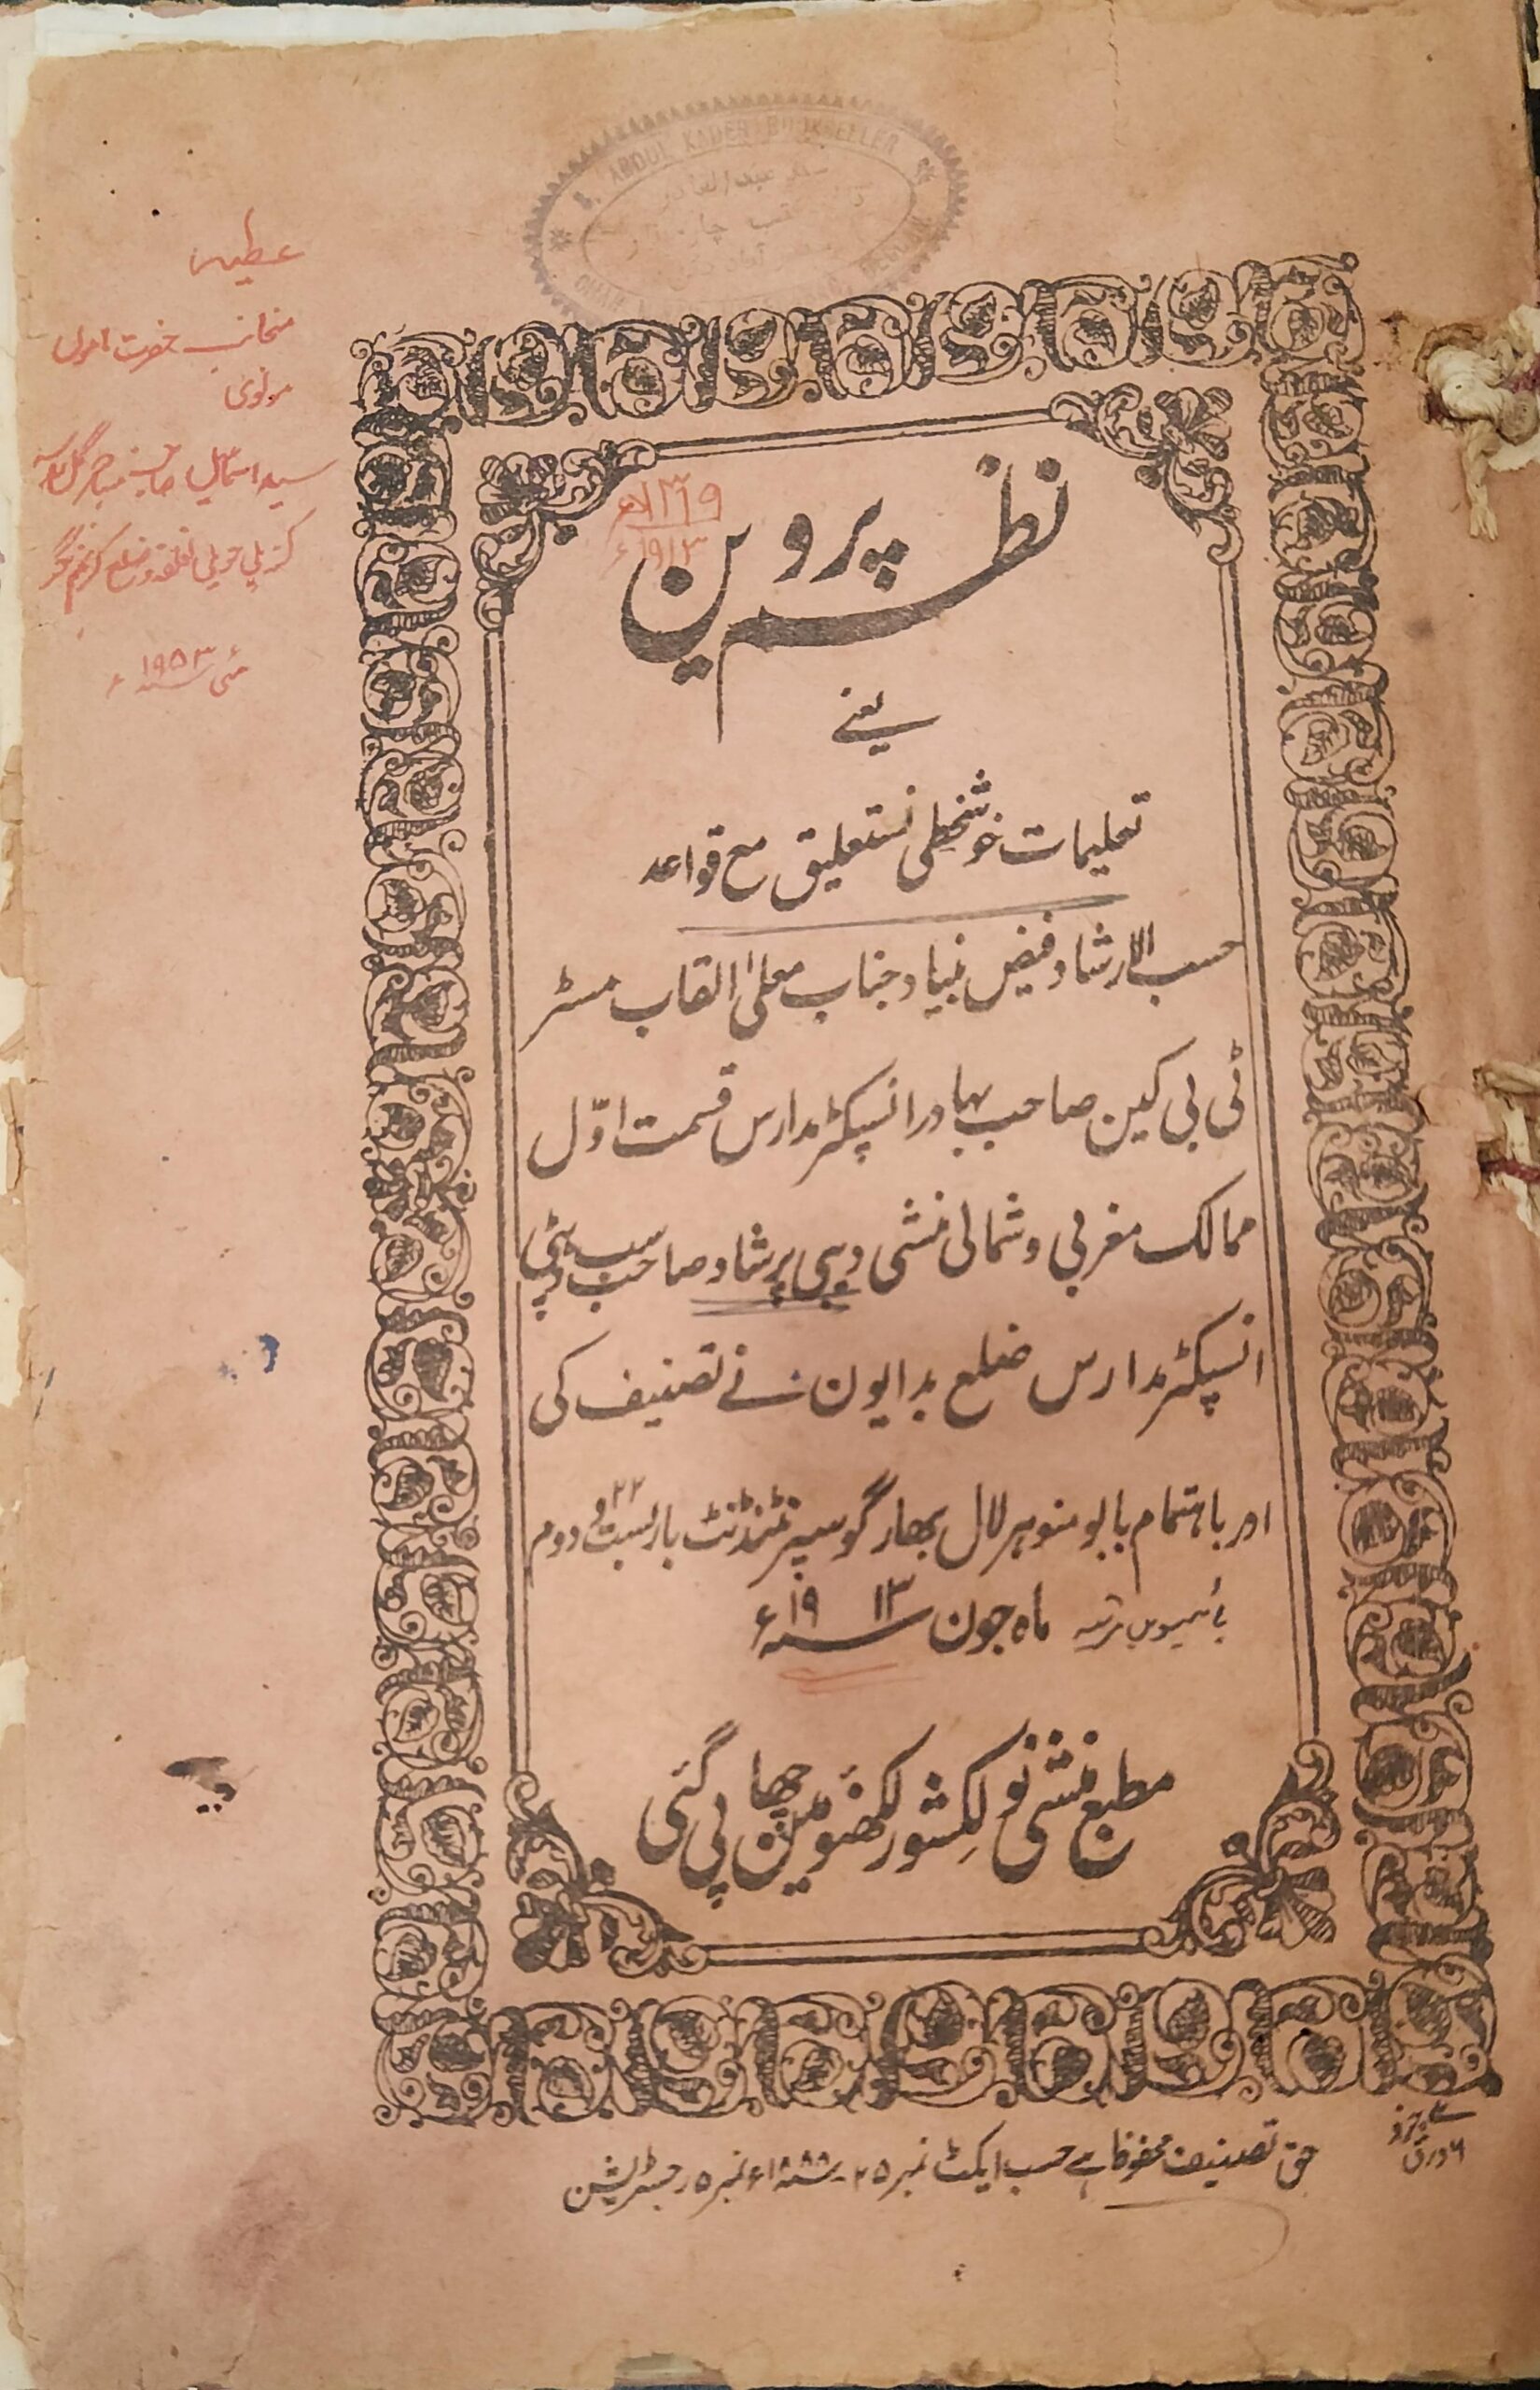 ABDUL KADER BOOKSELLER
عطیہ
منجانب حضرت
مولوی
سید اسمٰعیل صاحب
مئی ۱۹۵۳ء
نظم پروین
۱۹۱۳ء
یعنے
تعلیمات خوشخطی نستعلیق مع قواعد
حسب الارشاد فیض بنیاد جناب معلیٰ القاب مسٹر
ٹی بی کین صاحب بہادر انسپکٹر مدارس قسمت اوّل
ممالک مغربی و شمالی منشی دیبی پرشاد صاحب سب ڈپٹی
انسپکٹر مدارس ضلع بدایون نے تصنیف کی
اور باہتمام بابو منوہر لال بھارگو سپرنٹنڈنٹ بار بست و دوم ۲۲
بائیسویں مرتبہ ماہ جون ۱۹۱۳ء
مطبع منشی نولکشور لکھنؤ مین چھاپی گئی
حق تصنیف محفوظ ہے حسب ایکٹ نمبر ۲۵ نمبر ۵ رجسٹریشن
جزو
۶ ورق